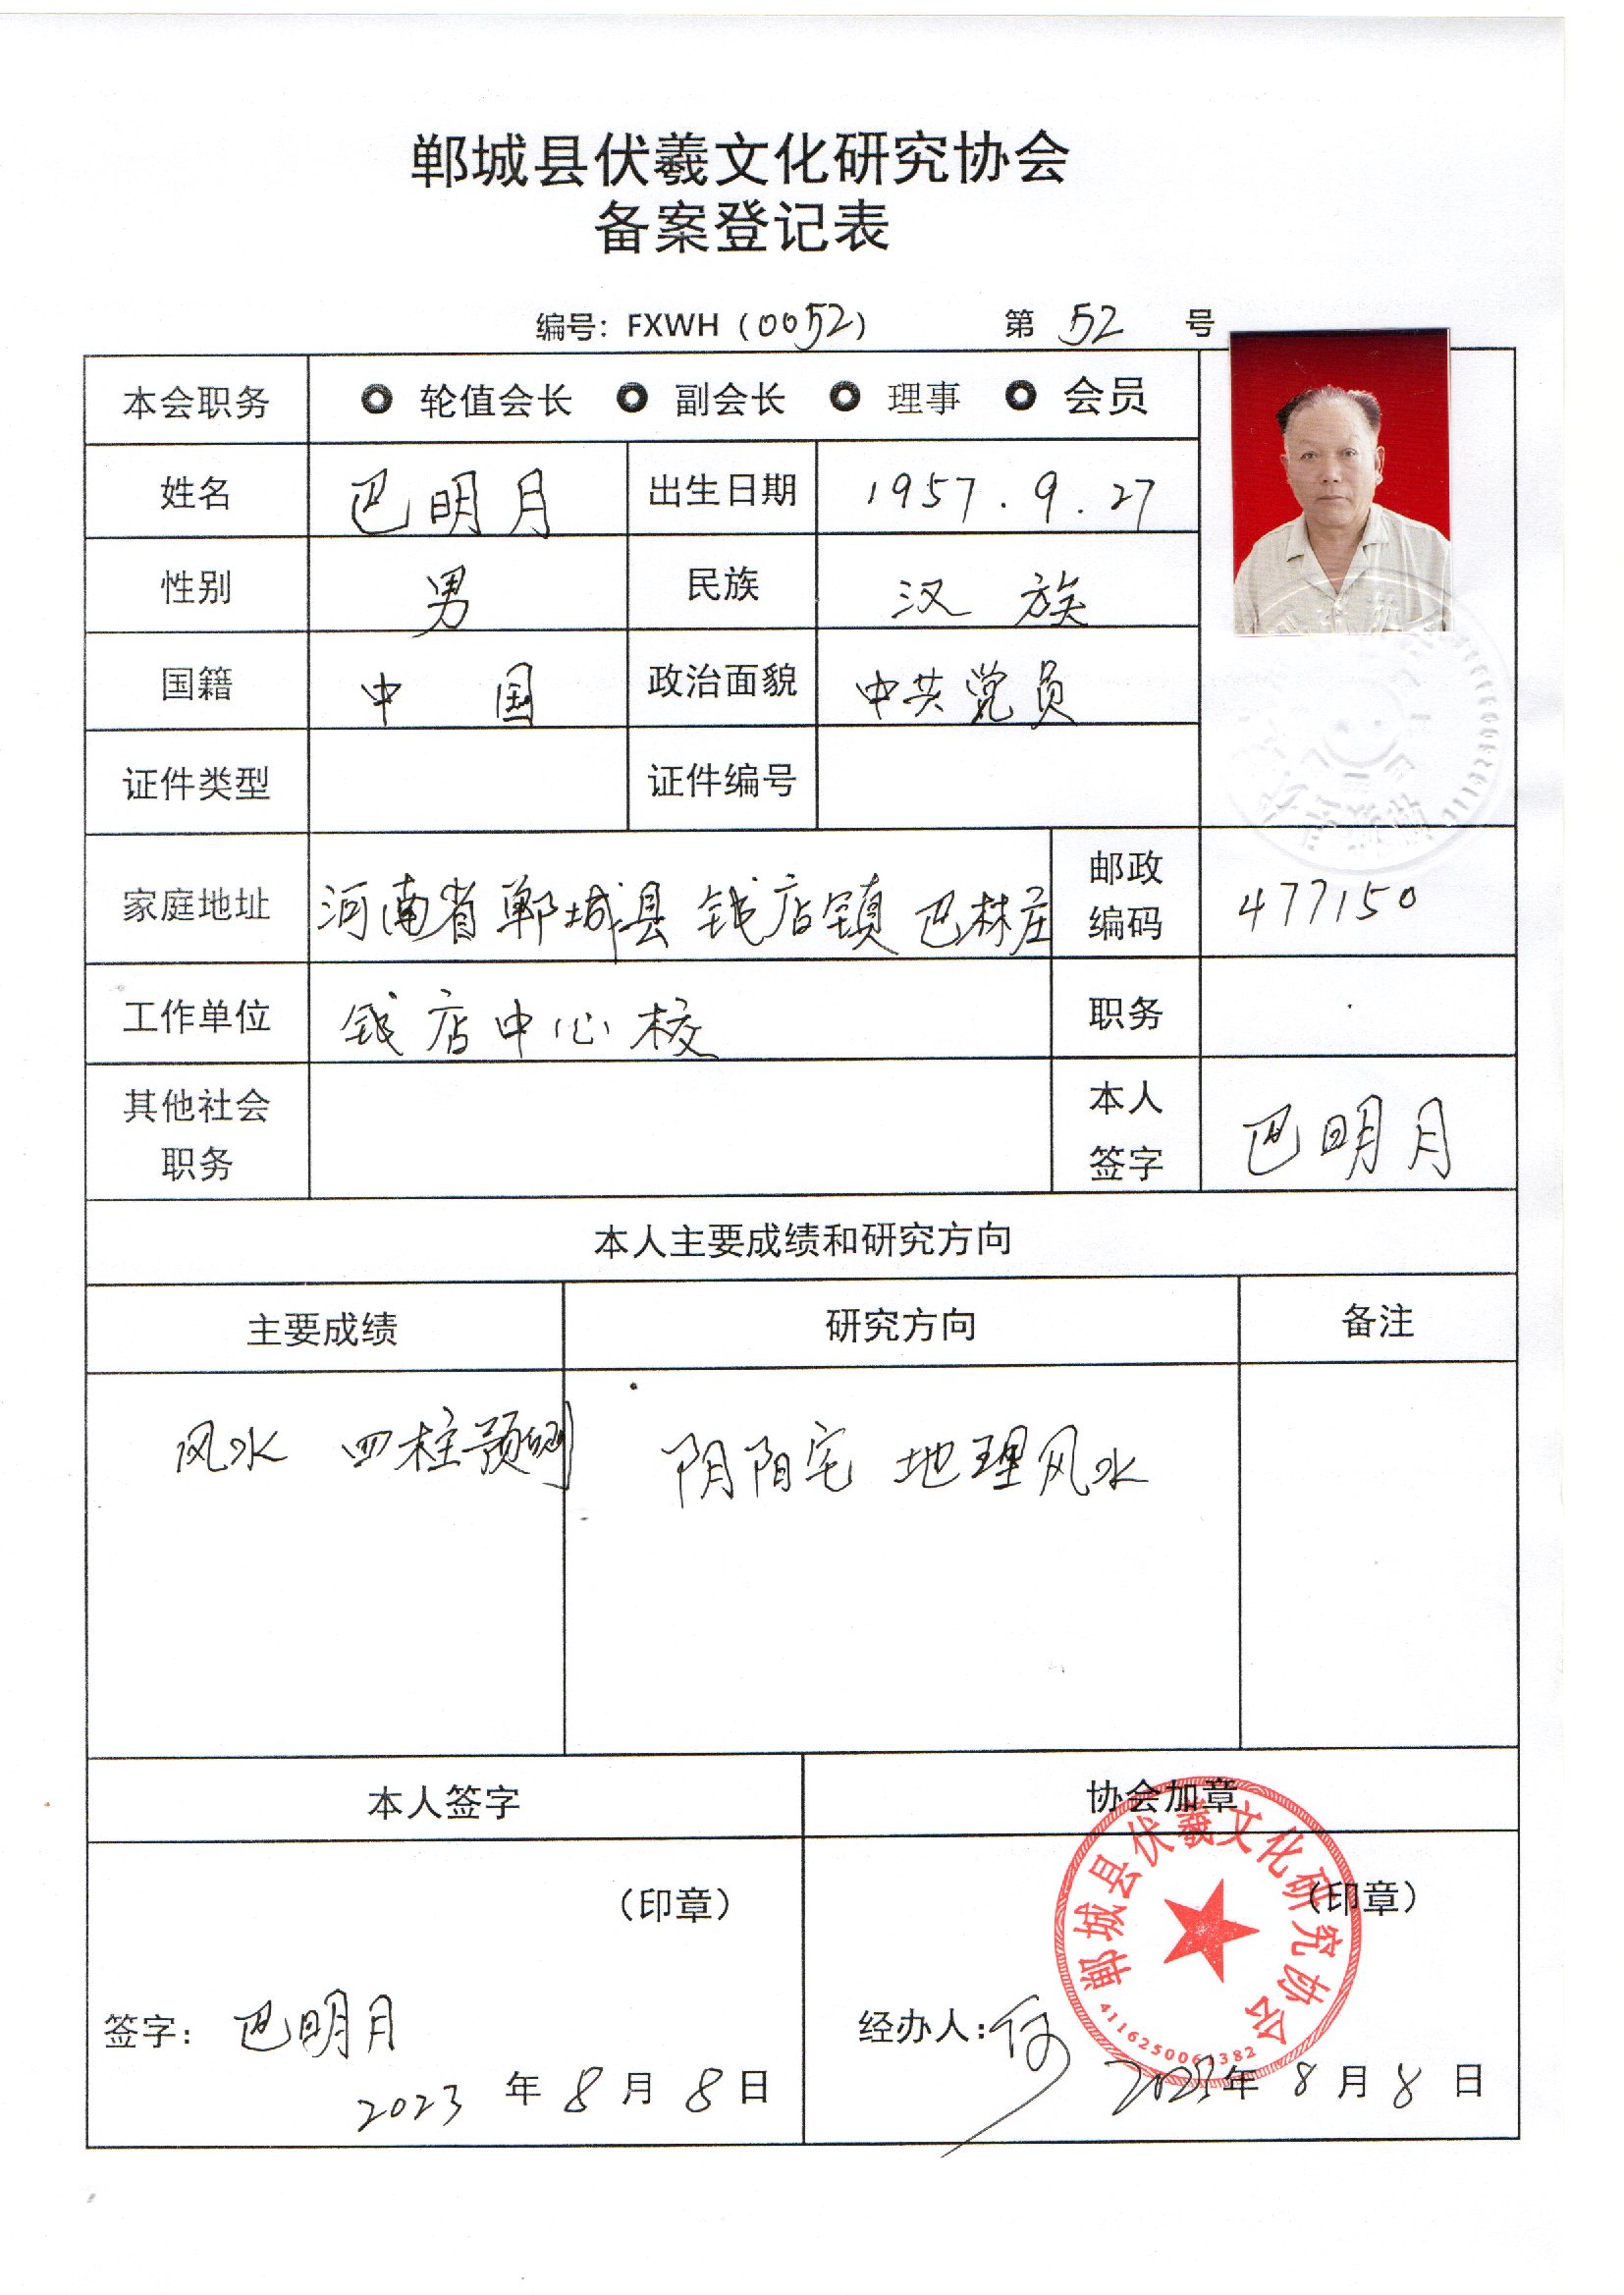 郸城县伏羲文化研究协会
备案登记表
编号：FXWH（0052） 第 52 号
本会职务 轮值会长 副会长 理事 会员
姓名 巴明月 出生日期 1957.9.27
性别 男 民族 汉族
国籍 中国 政治面貌 中共党员
证件类型 证件编号
家庭地址 河南省郸城县钱店镇巴林庄 邮政编码 477150
工作单位 钱店中心校 职务
其他社会职务 本人签字 巴明月
本人主要成绩和研究方向
主要成绩 研究方向 备注
风水 四柱预测 阴阳宅 地理风水
本人签字 协会加章
（印章） （印章）
郸城县伏羲文化研究协会
4116250061382
签字：巴明月 经办人：
2023年8月8日 2023年8月8日